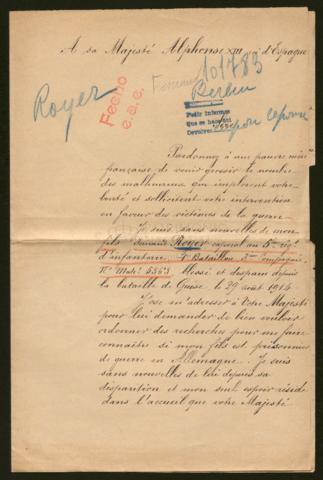 A sa Majesté Alphonse XIII roi d'Espagne
101783
Royer
Fecho
e.a.e.
Berlin
Pedir Informes
Que se haga así
Devolver
Pardonnez à une pauvre mère
française de venir grossir le nombre
des malheureux qui implorent votre
bonté et sollicitent votre intervention
en faveur des victimes de la guerre.
Je suis sans nouvelles de mon
fils Fernand Royer caporal au 5me régt
d'infanterie Bataillon Compagnie,
No Mate 5363 blessé et disparu depuis
la bataille de Guise le 29 août 1914
J'ose m'adresser à Votre Majesté
pour lui demander de bien vouloir
ordonner des recherches pour me faire
connaître si mon fils est prisonnier
de guerre en Allemagne. Je suis
sans nouvelles de lui depuis sa
disparition et mon seul espoir réside
dans l'accueil que votre Majesté